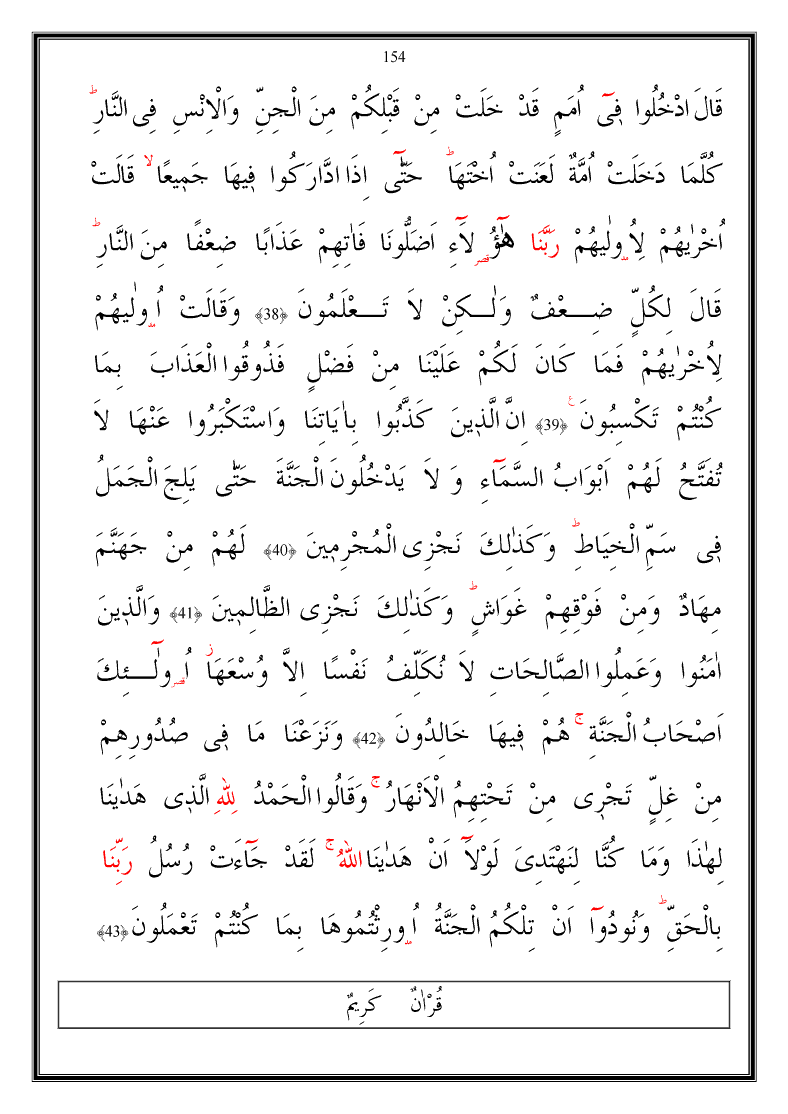 154
قَالَ ادْخُلُوا فٖٓى اُمَمٍ قَدْ خَلَتْ مِنْ قَبْلِكُمْ مِنَ الْجِنِّ وَالْاِنْسِ فِى النَّارِؕ
كُلَّمَا دَخَلَتْ اُمَّةٌ لَعَنَتْ اُخْتَهَاؕ حَتّٰٓى اِذَا ادَّارَكُوا فٖيهَا جَمٖيعًاۙ قَالَتْ
اُخْرٰيهُمْ لِاُو۫لٰيهُمْ رَبَّنَا هٰٓؤُ۬لَٓاءِ اَضَلُّونَا فَاٰتِهِمْ عَذَابًا ضِعْفًا مِنَ النَّارِؕ
قَالَ لِكُلٍّ ضِـــعْفٌ وَلٰـــكِنْ لَا تَـــعْلَمُونَ ﴿38﴾ وَقَالَتْ اُو۫لٰيهُمْ
لِاُخْرٰيهُمْ فَمَا كَانَ لَكُمْ عَلَيْنَا مِنْ فَضْلٍ فَذُوقُوا الْعَذَابَ بِمَا
كُنْتُمْ تَكْسِبُونَ ࣖ ﴿39﴾ اِنَّ الَّذٖينَ كَذَّبُوا بِاٰيَاتِنَا وَاسْتَكْبَرُوا عَنْهَا لَا
تُفَتَّحُ لَهُمْ اَبْوَابُ السَّمَٓاءِ وَ لَا يَدْخُلُونَ الْجَنَّةَ حَتّٰى يَلِجَ الْجَمَلُ
فٖى سَمِّ الْخِيَاطِؕ وَكَذٰلِكَ نَجْزِى الْمُجْرِمٖينَ ﴿40﴾ لَهُمْ مِنْ جَهَنَّمَ
مِهَادٌ وَمِنْ فَوْقِهِمْ غَوَاشٍؕ وَكَذٰلِكَ نَجْزِى الظَّالِمٖينَ ﴿41﴾ وَالَّذٖينَ
اٰمَنُوا وَعَمِلُوا الصَّالِحَاتِ لَا نُكَلِّفُ نَفْسًا اِلَّا وُسْعَهَاؗ اُو۬لٰٓـــئِكَ
اَصْحَابُ الْجَنَّةِۚ هُمْ فٖيهَا خَالِدُونَ ﴿42﴾ وَنَزَعْنَا مَا فٖى صُدُورِهِمْ
مِنْ غِلٍّ تَجْرٖى مِنْ تَحْتِهِمُ الْاَنْهَارُۚ وَقَالُوا الْحَمْدُ لِلّٰهِ الَّذٖى هَدٰينَا
لِهٰذَا وَمَا كُنَّا لِنَهْتَدِىَ لَوْلَٓا اَنْ هَدٰينَا اللّٰهُۚ لَقَدْ جَٓاءَتْ رُسُلُ رَبِّنَا
بِالْحَقِّؕ وَنُودُٓوا اَنْ تِلْكُمُ الْجَنَّةُ اُو۫رِثْتُمُوهَا بِمَا كُنْتُمْ تَعْمَلُونَ ﴿43﴾
قُرْاٰنٌ كَرِيمٌ